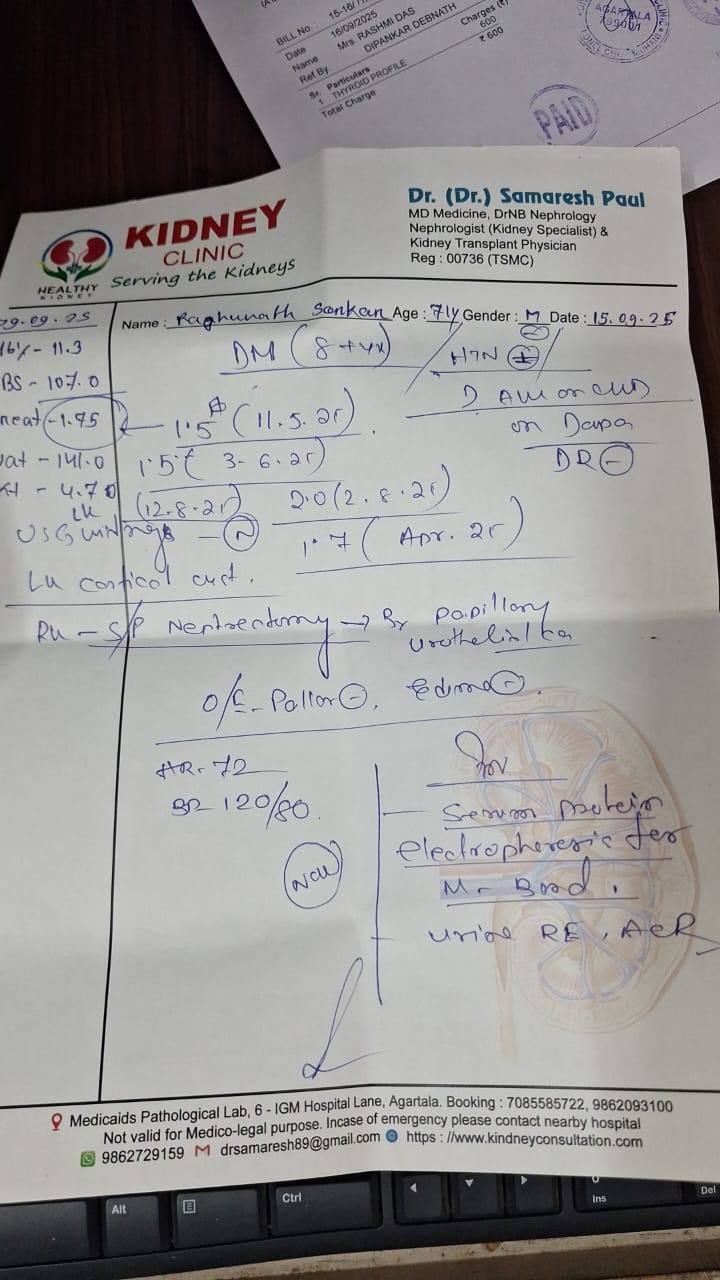 BILL No
15-16/
Date
16/09/2025
Name
Mrs. RASHMI DAS
Ref By.
DIPANKAR DEBNATH
Sr. Particulars
Charges (₹)
1 THYROID PROFILE
600
Total Charge
₹ 600
AGARTALA
PAID
HEALTHY
KIDNEY
KIDNEY
CLINIC
Serving the Kidneys
Dr. (Dr.) Samaresh Paul
MD Medicine, DrNB Nephrology
Nephrologist (Kidney Specialist) &
Kidney Transplant Physician
Reg : 00736 (TSMC)
Name : Raghunath Sarkar Age : 71y Gender : M Date : 15.09.25
29.09.25
- 11.3
BS - 107.0
- 1.75
- 141.0
- 4.70
USG
LK cortical cyst.
DM (8+yr) / HTN (+)
1.5 (11.5.25)
1.5 ( 3.6.25)
(12.8.25) 2.0 (2.8.25)
1.7 ( Apr. 25)
on Dapa
DR (-)
RK - S/P Nephrectomy → Papillary
urothelial Ca
O/E - Pallor (-), Edema (-).
HR - 72
BP 120/80.
Inv
- Serum protein
electrophoresis for
M - Band.
- Urine RE, ACR
Medicaids Pathological Lab, 6 - IGM Hospital Lane, Agartala. Booking : 7085585722, 9862093100
Not valid for Medico-legal purpose. Incase of emergency please contact nearby hospital
9862729159 drsamaresh89@gmail.com https : //www.kindneyconsultation.com
Alt
Ctrl
Ins
Del